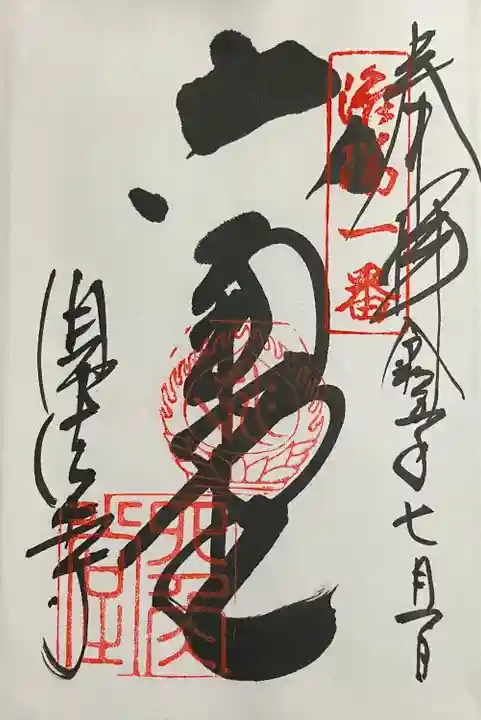 奉拝 令和五年七月一日
洛陽一番
六角堂
頂法寺